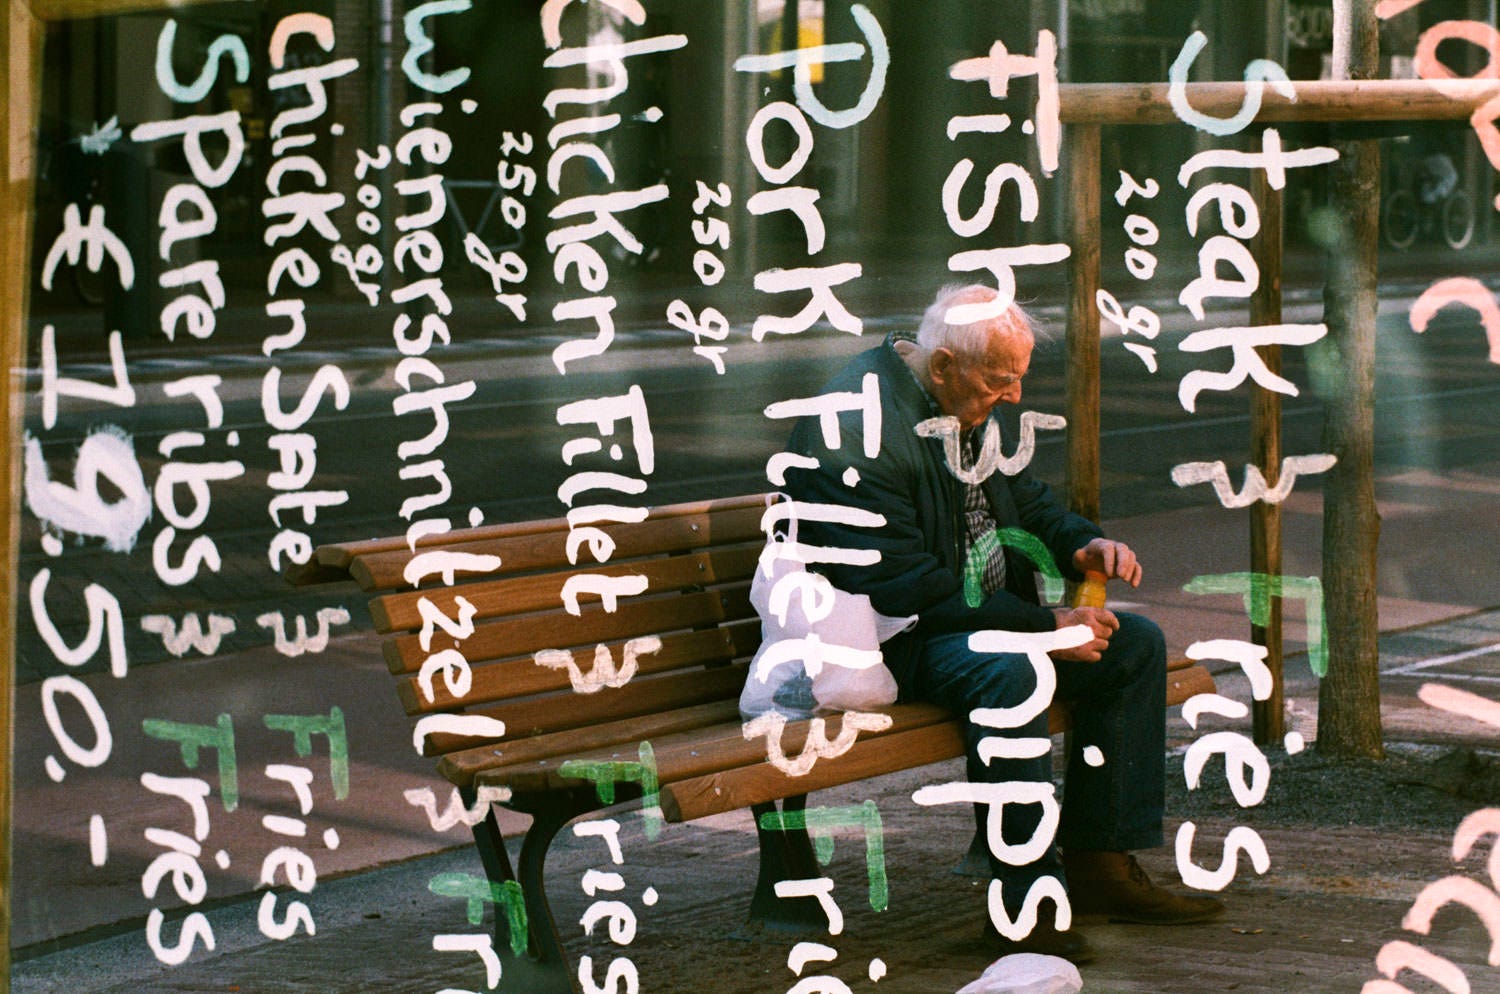 Steak & Fries
200 gr
Fish & Chips
Pork Fillet & Frie
250 gr
Chicken Fillet & Fries
250 gr
Wienerschnitzel & Fr
200 gr
Chicken Sate & Fries
Spare ribs & Fries
* € 19.50.-